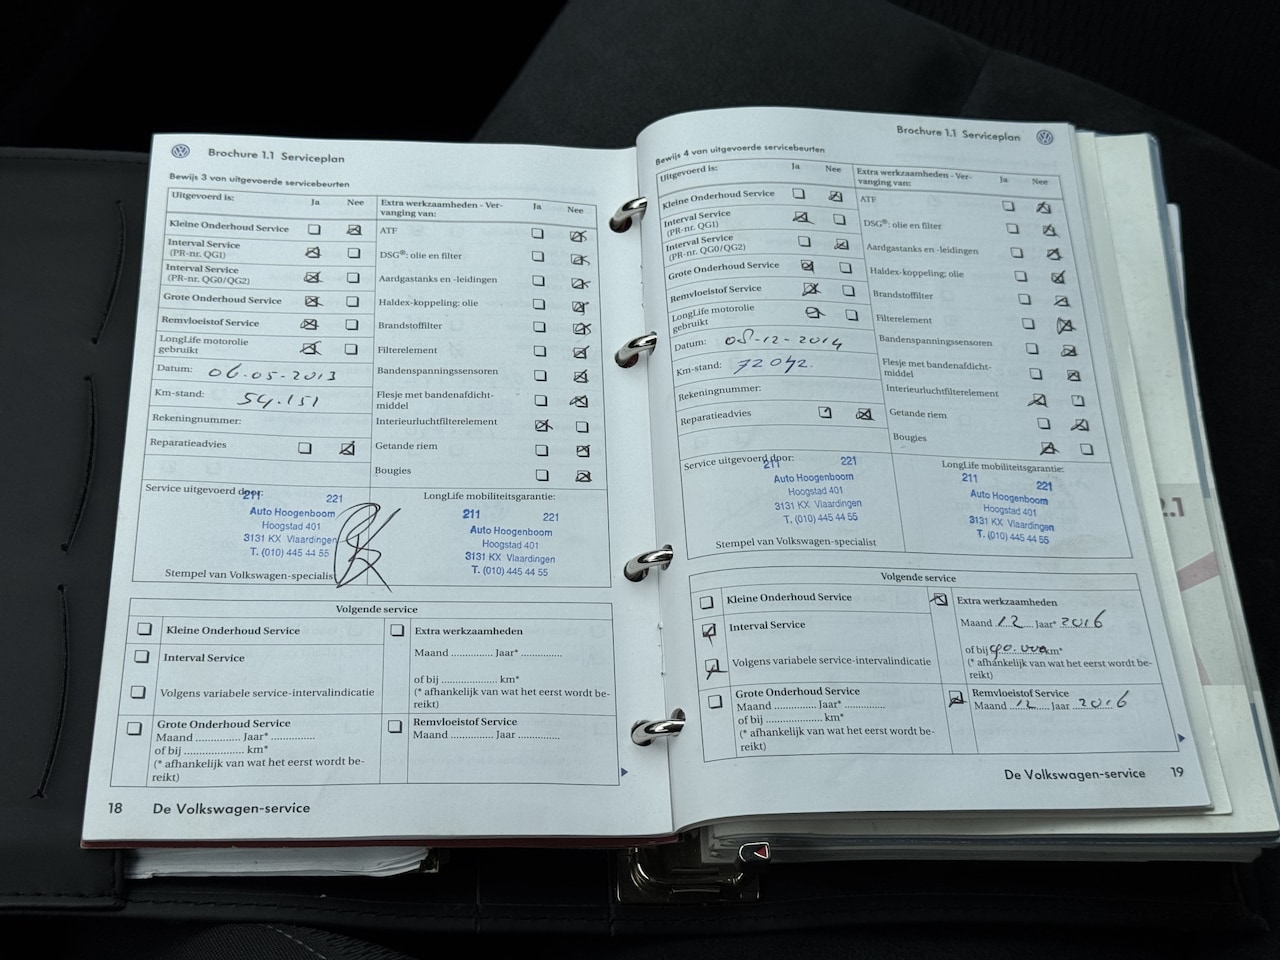 Brochure 1.1 Serviceplan
Bewijs 3 van uitgevoerde servicebeurten
Uitgevoerd is: Ja Nee
Kleine Onderhoud Service
Interval Service
(PR-nr. QG1)
Interval Service
(PR-nr. QG0/QG2)
Grote Onderhoud Service
Remvloeistof Service
LongLife motorolie
gebruikt
Datum: 06-05-2013
Km-stand: 54.151
Rekeningnummer:
Reparatieadvies
Extra werkzaamheden - Ver-
vanging van: Ja Nee
ATF
DSG®: olie en filter
Aardgastanks en -leidingen
Haldex-koppeling: olie
Brandstoffilter
Filterelement
Bandenspanningssensoren
Flesje met bandenafdicht-
middel
Interieurluchtfilterelement
Getande riem
Bougies
Service uitgevoerd door:
211 221
Auto Hoogenboom
Hoogstad 401
3131 KX Vlaardingen
T. (010) 445 44 55
Stempel van Volkswagen-specialist
LongLife mobiliteitsgarantie:
211 221
Auto Hoogenboom
Hoogstad 401
3131 KX Vlaardingen
T. (010) 445 44 55
Volgende service
Kleine Onderhoud Service
Interval Service
Volgens variabele service-intervalindicatie
Extra werkzaamheden
Maand ............... Jaar* ...............
of bij ............... km*
(* afhankelijk van wat het eerst wordt be-
reikt)
Grote Onderhoud Service
Maand ............... Jaar* ...............
of bij .................... km*
(* afhankelijk van wat het eerst wordt be-
reikt)
Remvloeistof Service
Maand ............... Jaar ...............
18 De Volkswagen-service
Brochure 1.1 Serviceplan
Bewijs 4 van uitgevoerde servicebeurten
Uitgevoerd is: Ja Nee
Kleine Onderhoud Service
Interval Service
(PR-nr. QG1)
Interval Service
(PR-nr. QG0/QG2)
Grote Onderhoud Service
Remvloeistof Service
LongLife motorolie
gebruikt
Datum: 08-12-2014
Km-stand: 72042.
Rekeningnummer:
Reparatieadvies
Extra werkzaamheden - Ver-
vanging van: Ja Nee
ATF
DSG®: olie en filter
Aardgastanks en -leidingen
Haldex-koppeling: olie
Brandstoffilter
Filterelement
Bandenspanningssensoren
Flesje met bandenafdicht-
middel
Interieurluchtfilterelement
Getande riem
Bougies
Service uitgevoerd door:
211 221
Auto Hoogenboom
Hoogstad 401
3131 KX Vlaardingen
T. (010) 445 44 55
Stempel van Volkswagen-specialist
LongLife mobiliteitsgarantie:
211 221
Auto Hoogenboom
Hoogstad 401
3131 KX Vlaardingen
T. (010) 445 44 55
Volgende service
Kleine Onderhoud Service
Interval Service
Volgens variabele service-intervalindicatie
Extra werkzaamheden
Maand 12 Jaar* 2016
of bij 90.000 km*
(* afhankelijk van wat het eerst wordt be-
reikt)
Grote Onderhoud Service
Maand ............... Jaar* ...............
of bij .................... km*
(* afhankelijk van wat het eerst wordt be-
reikt)
Remvloeistof Service
Maand 12 Jaar 2016
De Volkswagen-service 19
2.1